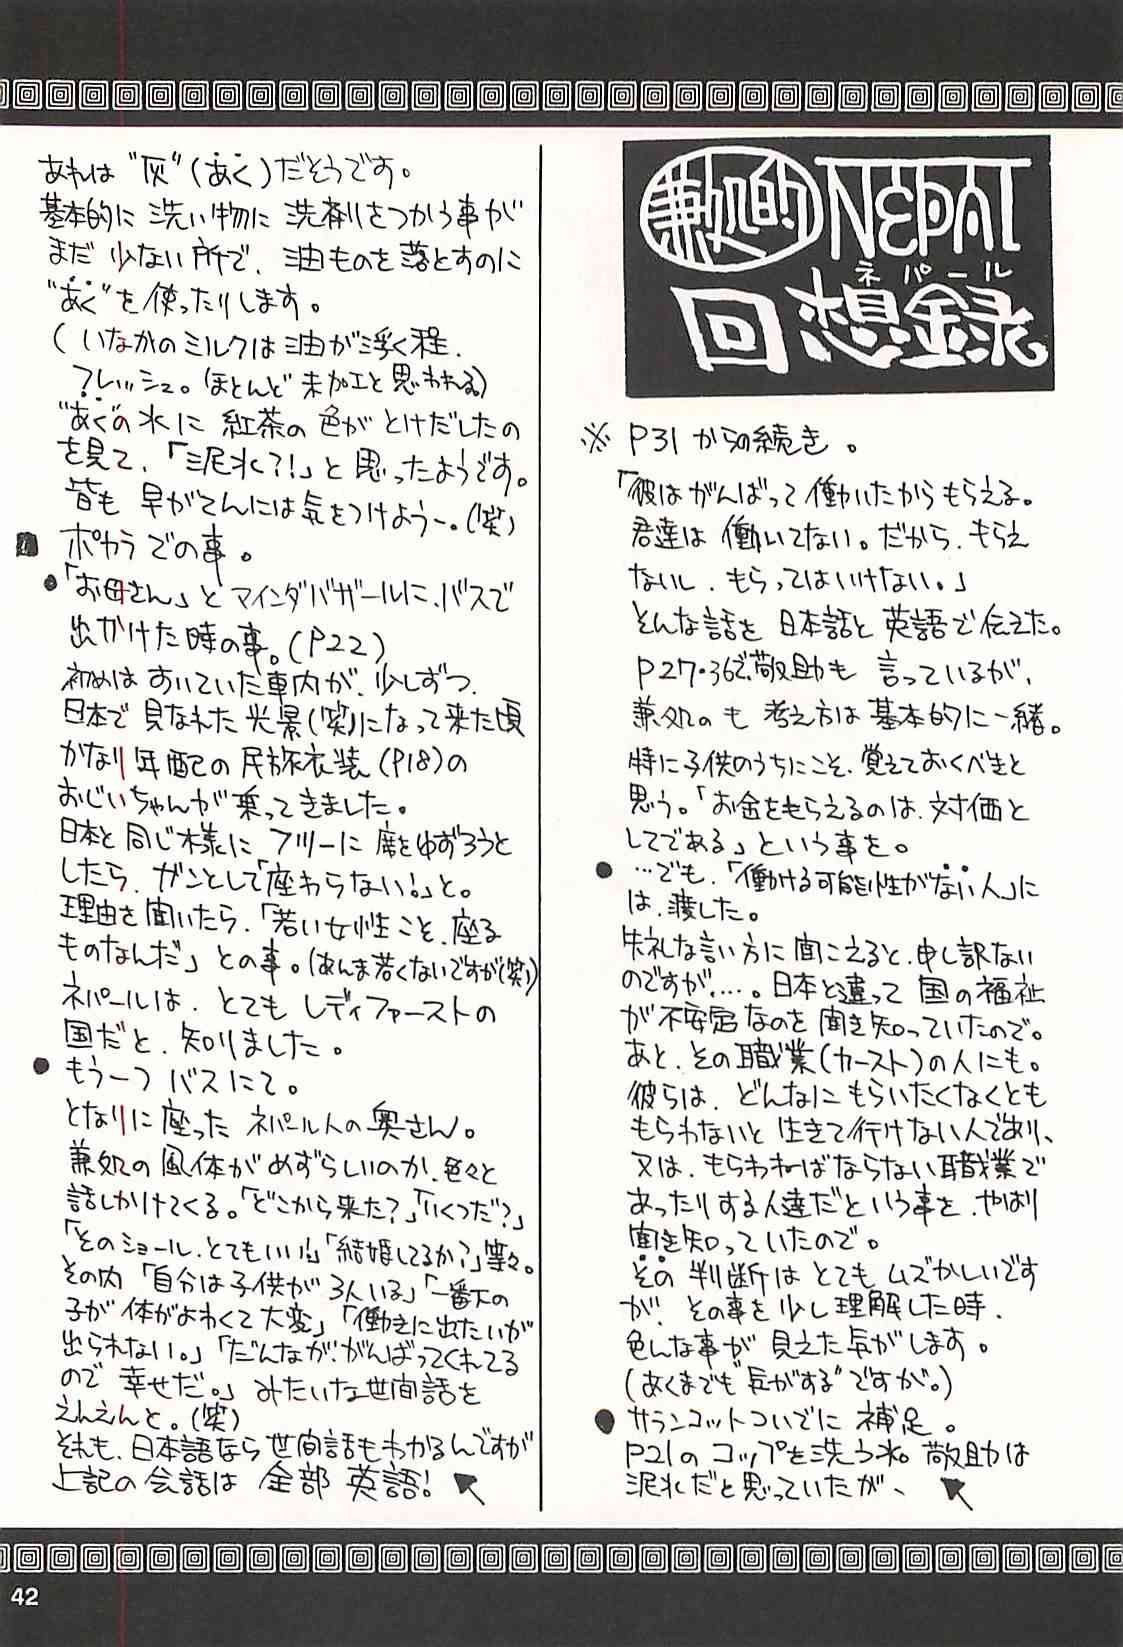 兼処的 NEPAL
ネパール
回想録
※ P31からの続き。
「彼はがんばって働いたからもらえる。
君達は働いてない。だから、もらえ
ないし、もらってはいけない。」
そんな話を日本話と英語で伝えた。
P27・36で敬助も言っているが、
兼処のも考え方は基本的に一緒。
特に子供のうちにこそ、覚えておくべきと
思う。「お金をもらえるのは、対価と
してである」という事を。
●…でも、「働ける可能性がない人」に
は、渡した。
失礼な言い方に聞こえると、申し訳ない
のですが…。日本と違って国の福祉
が不安定なのを聞き知っていたので。
あと、その職業(カースト)の人にも。
彼らは、どんなにもらいたくなくとも
もらわないと生きて行けない人であり、
又は、もらわねばならない職業で
あったりする人達だという事を、やはり
聞き知っていたので。
その判断はとてもムズかしいです
が、その事を少し理解した時、
色んな事が見えた気がします。
(あくまでも"気がする"ですが。)
●サランコットついでに補足。
P21のコップを洗う水。敬助は
泥水だと思っていたが、
あれは"灰"(あく)だそうです。
基本的に洗い物に洗剤をつかう事が
まだ少ない所で、油ものを落とすのに
"あく"を使ったりします。
(いなかのミルクは油が浮く程、
フレッシュ。ほとんど未加工と思われる)
"あく"の水に紅茶の色がとけだしたの
を見て、「泥水?!」と思ったようです。
皆も早がてんには気をつけよう〜。(笑)
■ポカラでの事。
●「お母さん」とマインダバガールに、バスで
出かけた時の事。(P22)
初めはすいていた車内が、少しずつ、
日本で見なれた光景(笑)になって来た頃
かなり年配の民族衣装(P18)の
おじいちゃんが乗ってきました。
日本と同じ様にフツーに席をゆずろうと
したら、ガンとして「座わらない!」と。
理由を聞いたら、「若い女性こそ、座る
ものなんだ」との事。(あんま若くないですが(笑))
ネパールは、とてもレディファーストの
国だと、知りました。
●もう一つバスにて。
となりに座ったネパール人の奥さん。
兼処の風体がめずらしいのか、色々と
話しかけてくる。「どこから来た?」「いくつだ?」
「そのショール、とてもいい」「結婚してるか?」等々。
その内「自分は子供が3人いる」「一番下の
子が体がよわくて大変」「働きに出たいが
出られない。」「だんなが、がんばってくれてる
ので幸せだ。」みたいな世間話を
えんえんと。(笑)
それも、日本語なら世間話もわかるんですが
上記の会話は全部英語!
42